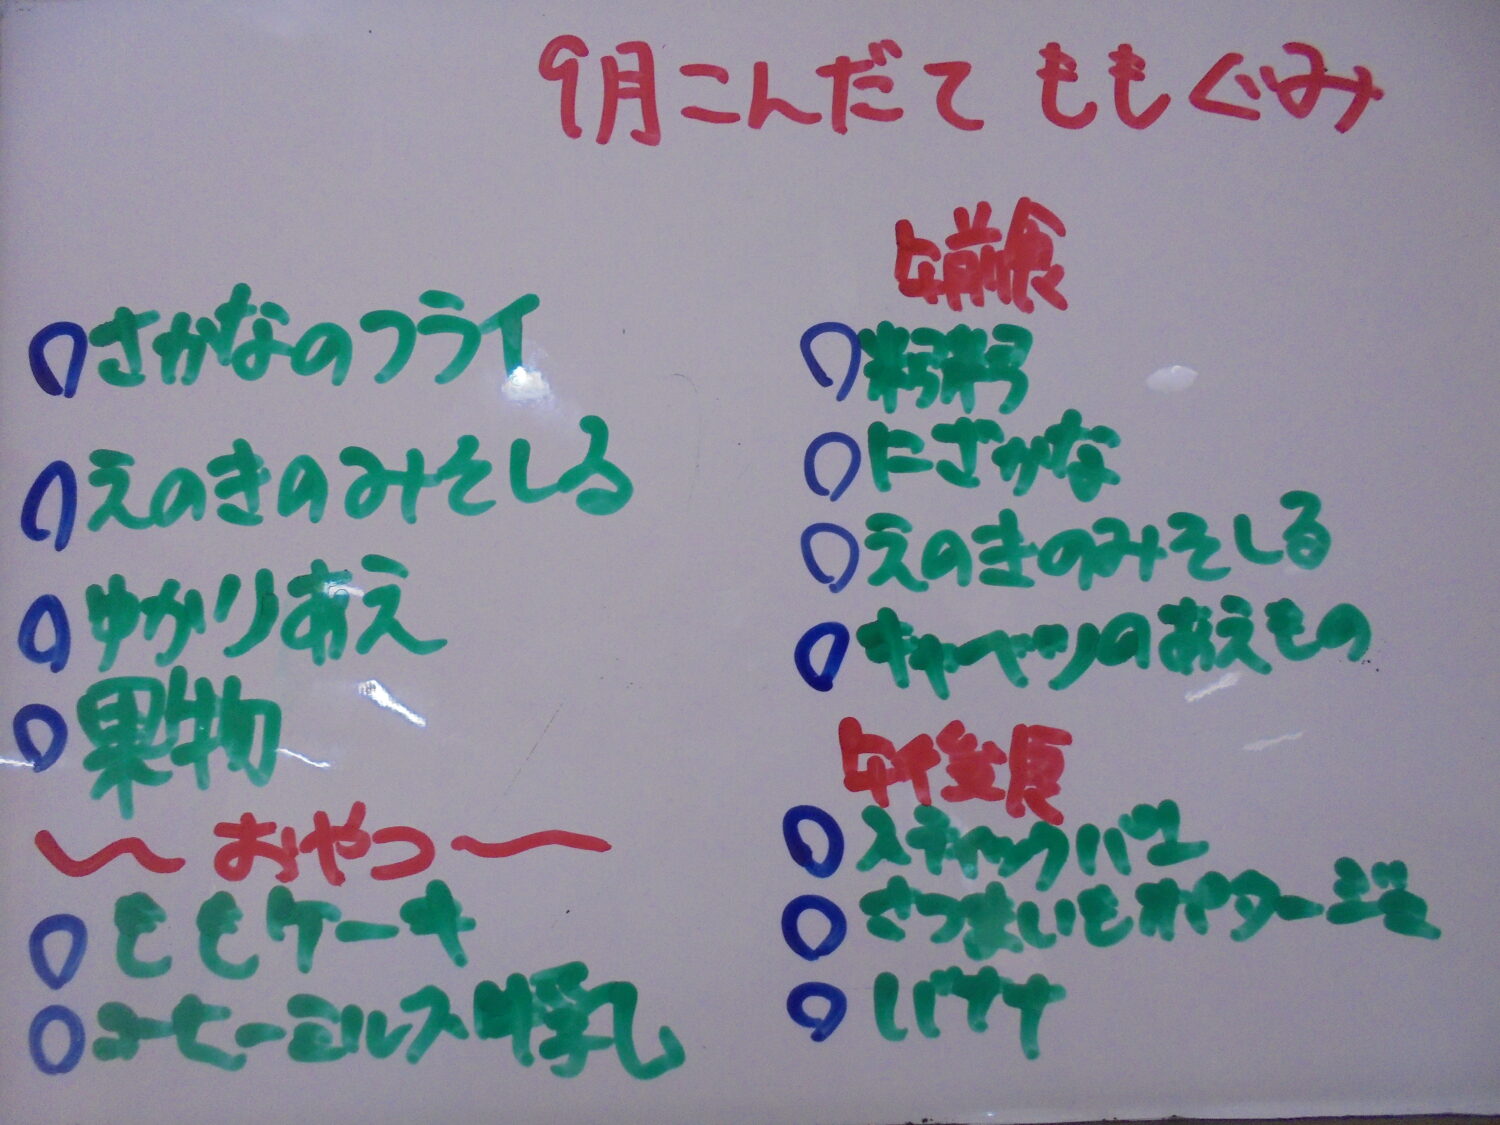 9月こんだて ももぐみ
さかなのフライ
えのきのみそしる
ゆかりあえ
果物
〜 おやつ 〜
ももケーキ
コーヒーミルク牛乳
午前食
粥粥
にざかな
えのきのみそしる
キャベツのあえもの
午後食
スティックパン
さつまいもポタージュ
バナナ